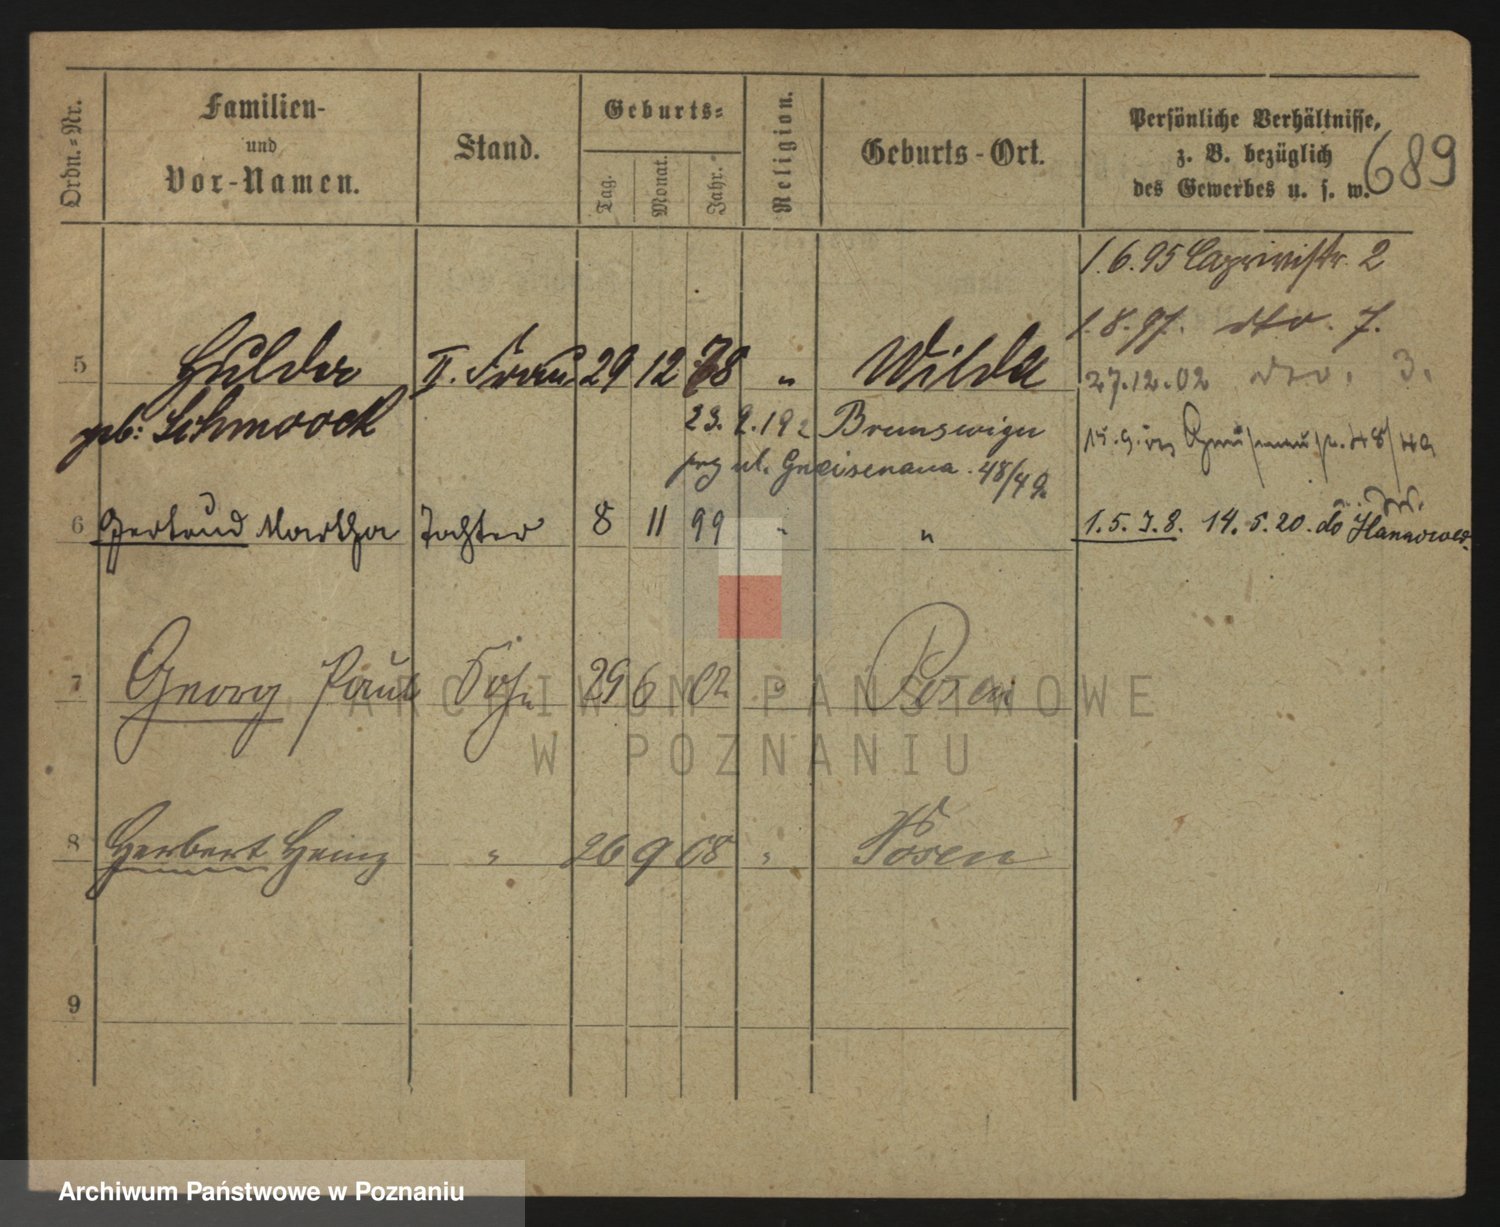 689
Ordn.-Nr.
Familien-
und
Vor-Namen.
Stand.
Geburts-
Tag.
Monat.
Jahr.
Religion.
Geburts-Ort.
Persönliche Verhältnisse,
z. B. bezüglich
des Gewerbes u. s. w.
1.6.95 Caprivistr. 2
1.8.97. dto. 7.
5 Hulda II. Frau 29 12 78 " Wilda
27.12.02 dto. 3.
geb: Schmoock
23. 2. 192 Brunswigu
ul. Gneisenaua. 48/49
48/49
6 Gertrud Martha Tochter 8 11 99 " "
1.5.3.8. 14.5.20. do Hannover
7 Georg Paul Sohn 29 6 02 " Posen
8 Herbert Heinz " 26 9 08 " Posen
9
ARCHIWUM PAŃSTWOWE
W POZNANIU
Archiwum Państwowe w Poznaniu